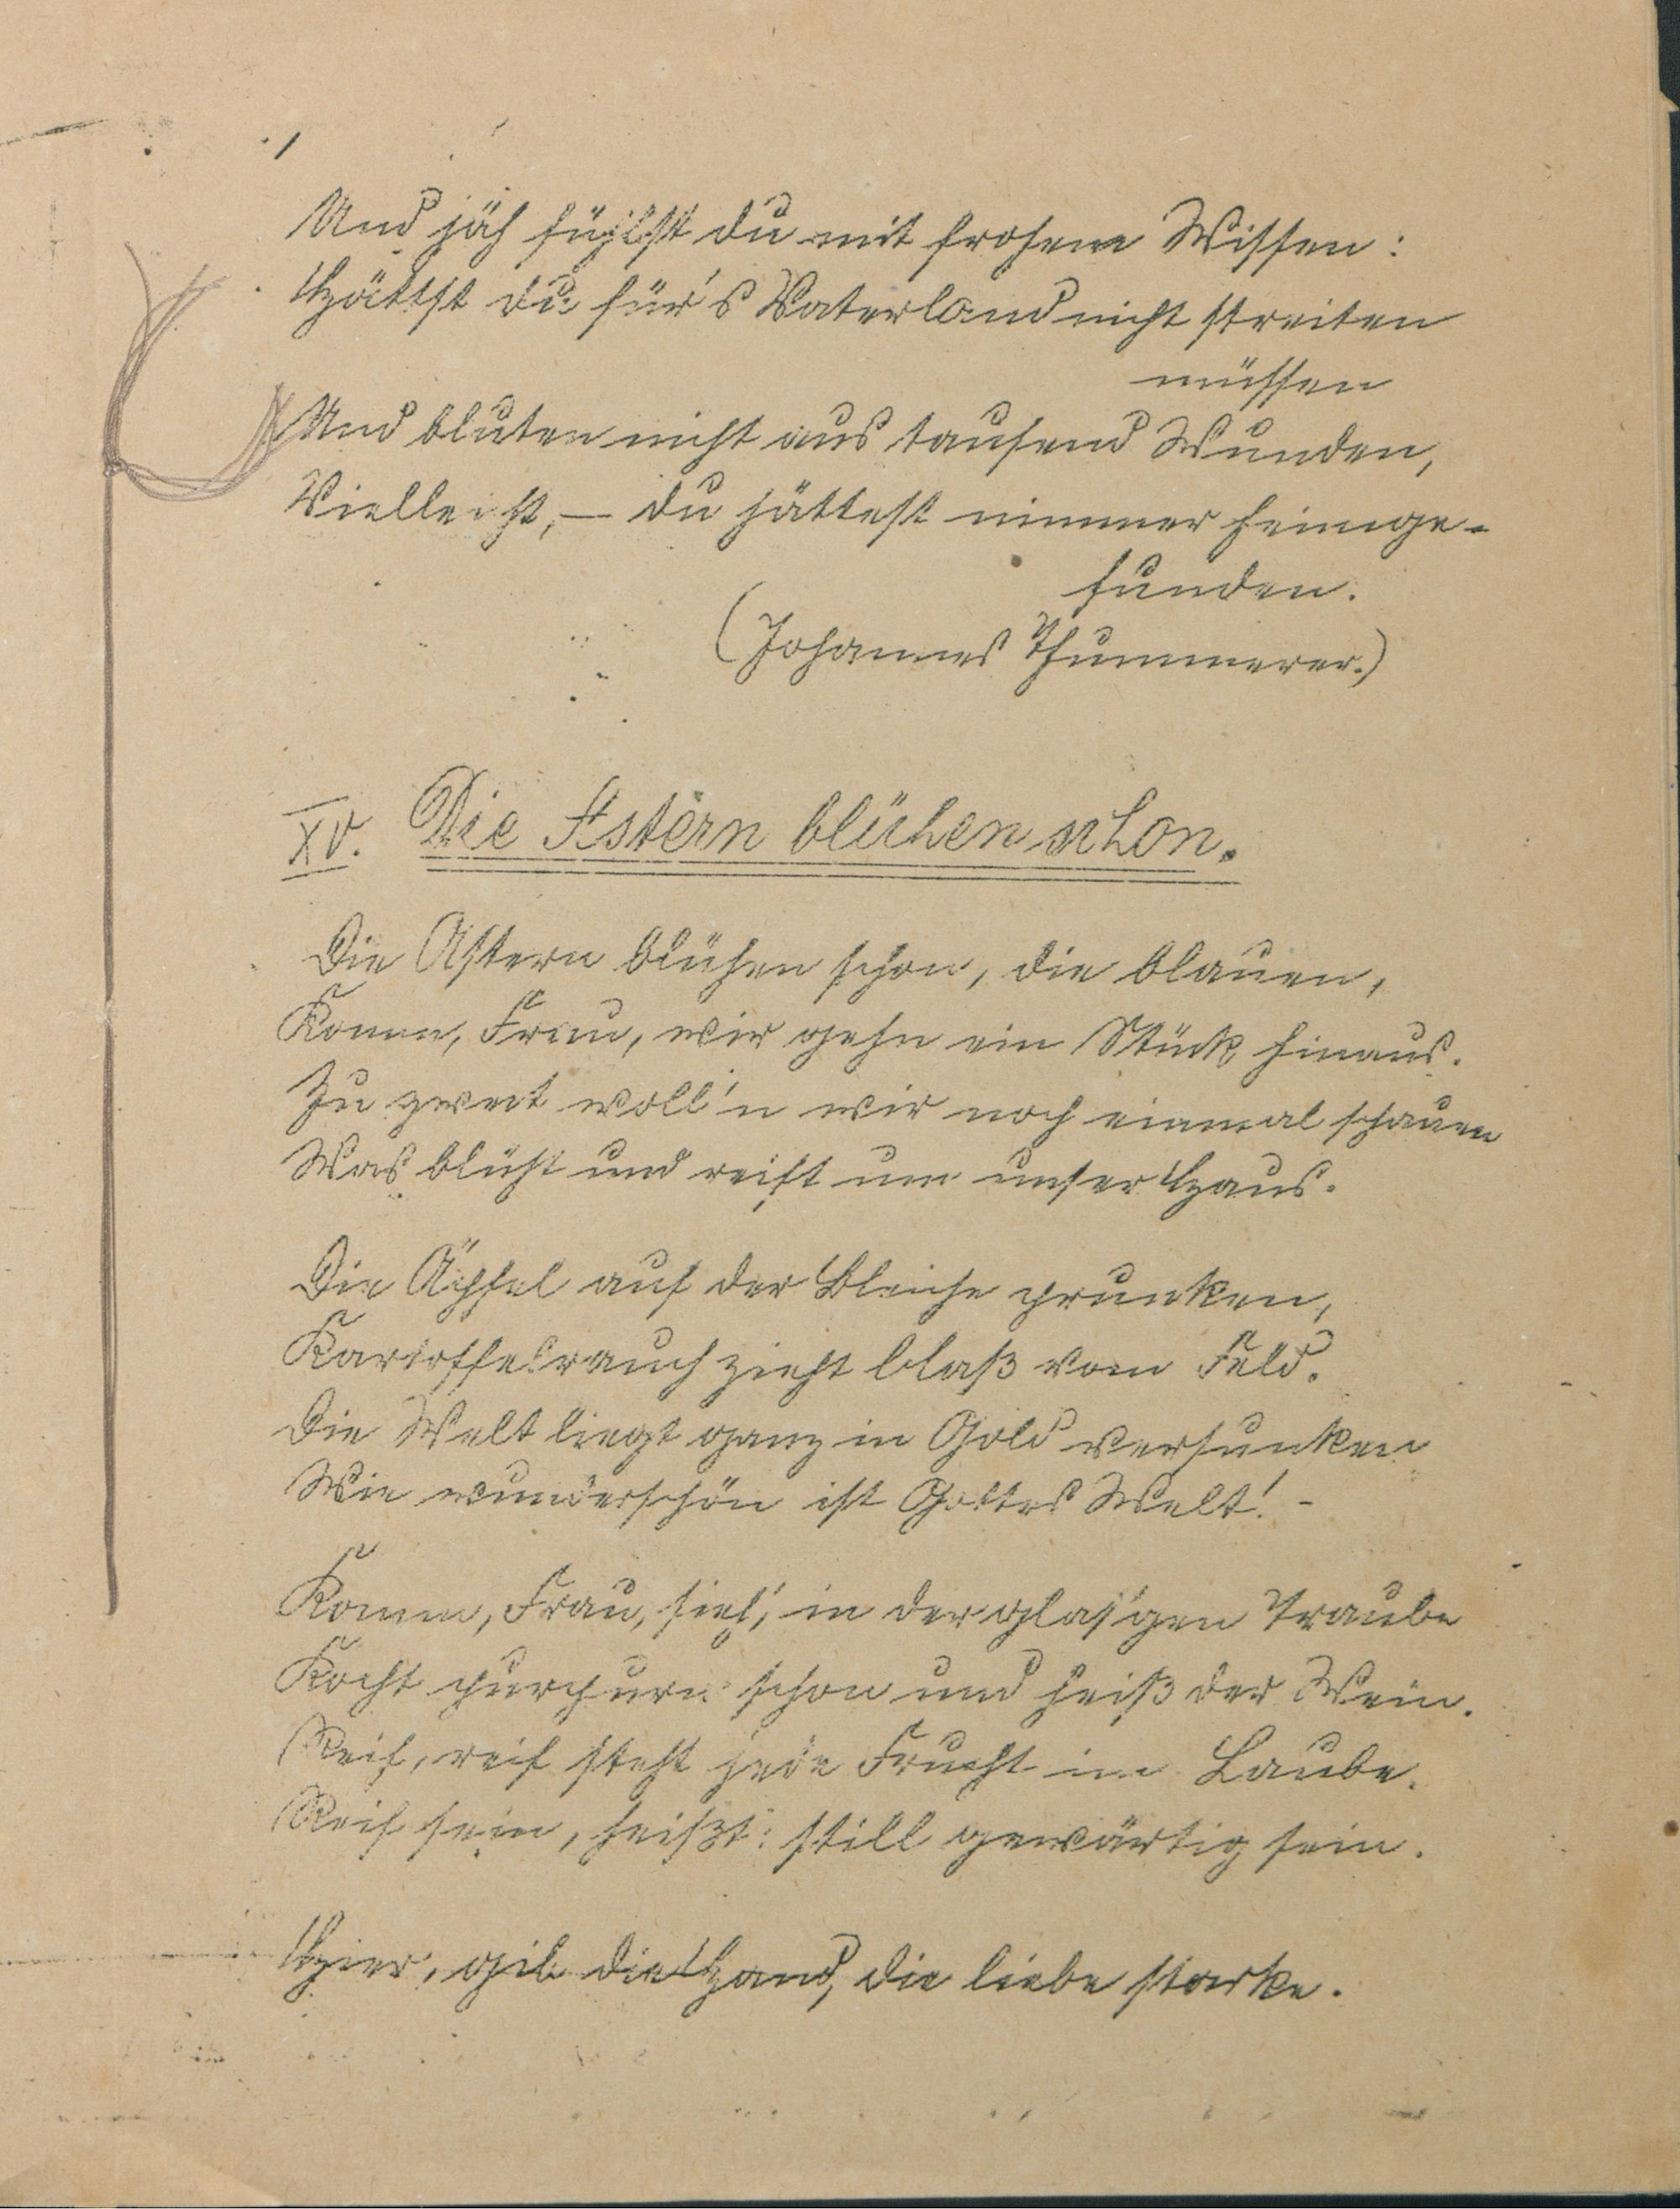 Und jäh fühlst du mit frohem Wissen:
Hättst du für's Vaterland nicht streiten
müssen
Und bluten nicht aus tausend Wunden,
Vielleicht, – du hättest nimmer heimge-
funden.
(Johannes Thummerer.)
XV. Die Astern blühen schon.
Die Astern blühen schon, die blauen,
Komm, Frau, wir gehn ein Stück hinaus.
Zu zweit woll'n wir noch einmal schauen
Was blüht und reift um unser Haus.
Die Äpfel auf der Bleiche prunken,
Kartoffelrauch zieht blaß vom Feld.
Die Welt liegt ganz in Gold versunken
Wie wunderschön ist Gottes Welt! -
Komm, Frau, sieh', in der glas'gen Traube
Kocht purpurn schon und heiß der Wein.
Reif, reif steht jede Frucht im Laube.
Reif sein, heißt: still gewärtig sein.
Hier, gib die Hand, die liebe starke.